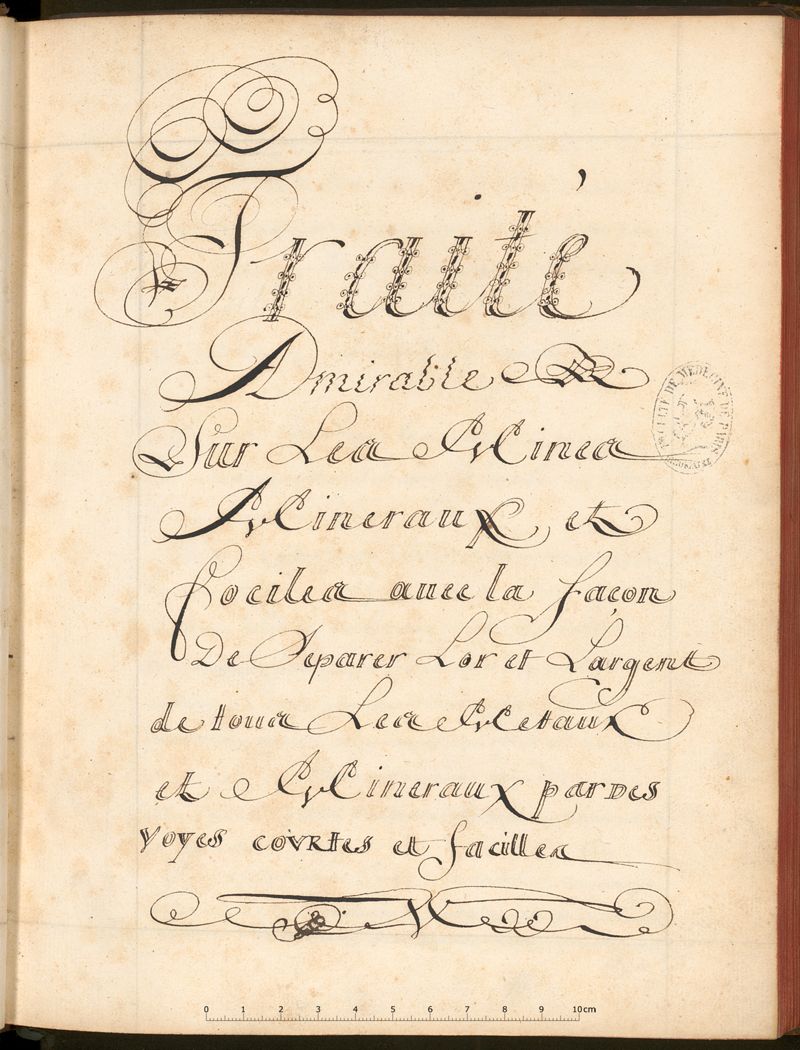 Traité
Admirable
Sur Les Mines
Mineraux et
fociles auec la façon
De Separer Lor et Largent
de tous Les Metaux
et Mineraux par des
voyes covrtes et facilles
FACULTÉ DE MÉDECINE DE PARIS
0 1 2 3 4 5 6 7 8 9 10cm